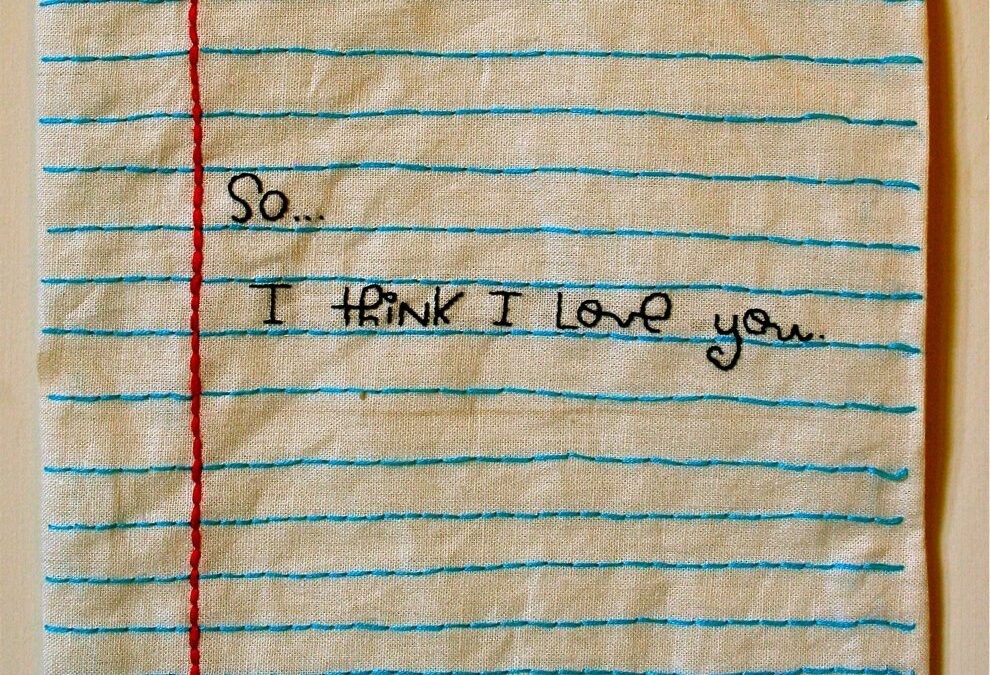 So...
I think I Love you.